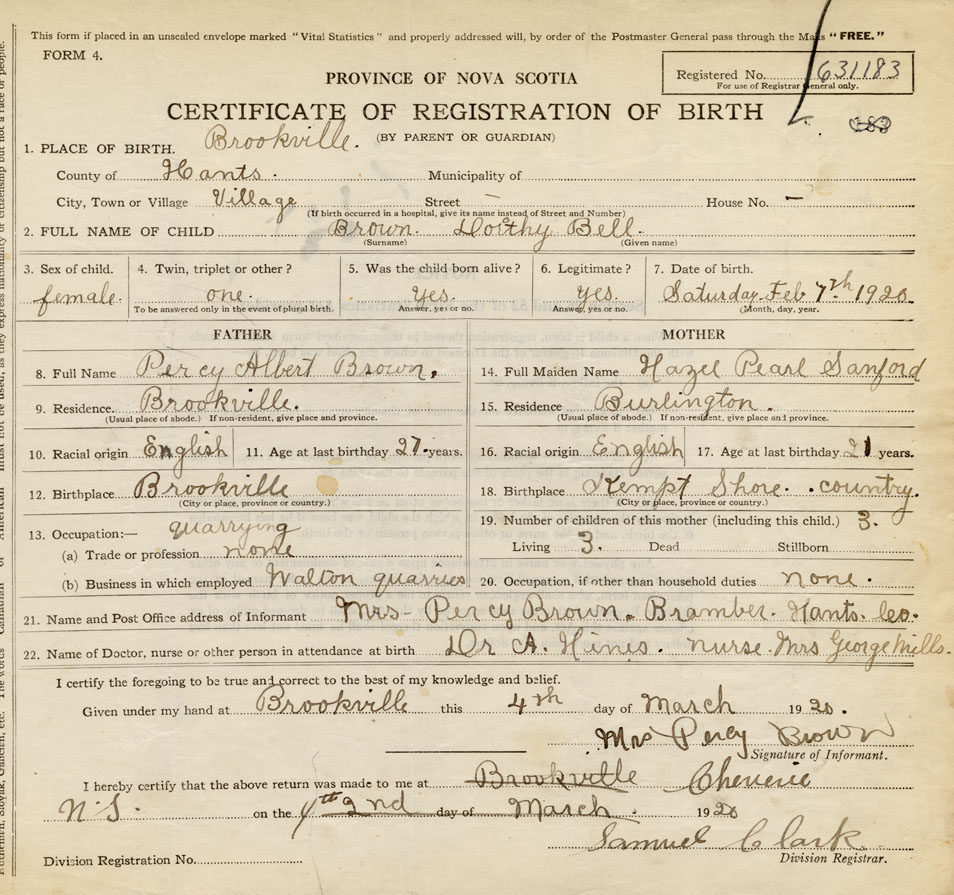 This form if placed in an unsealed envelope marked "Vital Statistics" and properly addressed will, by order of the Postmaster General pass through the Mails "FREE."
FORM 4.
PROVINCE OF NOVA SCOTIA
Registered No. 631183
For use of Registrar General only.
CERTIFICATE OF REGISTRATION OF BIRTH
(BY PARENT OR GUARDIAN)
1. PLACE OF BIRTH. Brookville.
County of Hants. Municipality of
City, Town or Village Village Street — House No. —
(If birth occurred in a hospital, give its name instead of Street and Number)
2. FULL NAME OF CHILD Brown. Dorthy Bell.
(Surname) (Given name)
3. Sex of child. 4. Twin, triplet or other? 5. Was the child born alive? 6. Legitimate? 7. Date of birth.
female. one. Yes. Yes. Saturday. Feb 7th. 1920.
To be answered only in the event of plural birth. Answer, yes or no. Answer, yes or no. (Month, day, year.
FATHER MOTHER
8. Full Name Percy Albert Brown. 14. Full Maiden Name Hazel Pearl Sanford
9. Residence. Brookville. 15. Residence Burlington.
(Usual place of abode.) If non-resident, give place and province. (Usual place of abode.) If non-resident, give place and province.
10. Racial origin English 11. Age at last birthday 27. years. 16. Racial origin English 17. Age at last birthday 21 years.
12. Birthplace Brookville 18. Birthplace Kempt Shore. country.
(City or place, province or country.) (City or place, province or country.)
13. Occupation:— quarrying 19. Number of children of this mother (including this child.) 3.
(a) Trade or profession none Living 3. Dead Stillborn
(b) Business in which employed Walton quarries 20. Occupation, if other than household duties none.
21. Name and Post Office address of Informant Mrs- Percy Brown. Bramber. Hants. Co.
22. Name of Doctor, nurse or other person in attendance at birth Dr A. Hines. nurse. Mrs George Mills.
I certify the foregoing to be true and correct to the best of my knowledge and belief.
Given under my hand at Brookville this 4th day of March 1920.
Mrs Percy Brown
Signature of Informant.
I hereby certify that the above return was made to me at Brookville Cheverie
N.S. on the 2nd day of March 1920
Samuel Clark
Division Registrar.
Division Registration No.